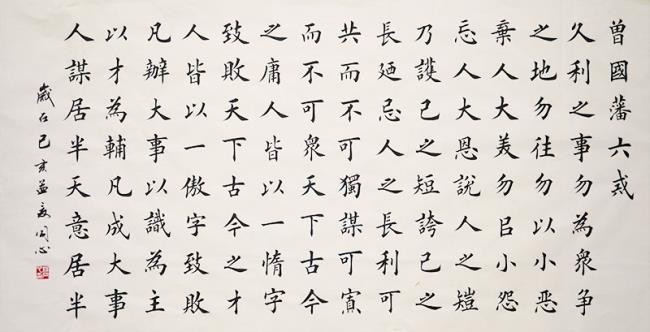 曾國藩六戒
久利之事勿為衆争
之地勿往勿以小惡
棄人大美勿㠯小怨
忘人大恩說人之短
乃護己之短誇己之
長廼忌人之長利可
共而不可獨謀可寡
而不可衆天下古今
之庸人皆以一惰字
致敗天下古今之才
人皆以一傲字致敗
凡辦大事以識為主
以才為輔凡成大事
人謀居半天意居半
歲在己亥孟夏同心